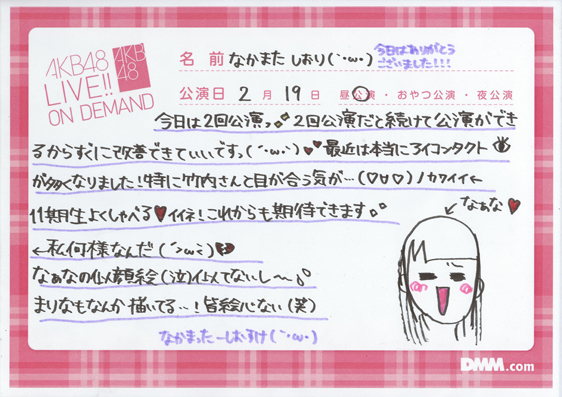 AKB48
LIVE!!
ON DEMAND
AKB
48
名前 なかまた しおり(`･ω･)
今日はありがとう
ございました!!!
公演日 2月19日 昼公演・おやつ公演・夜公演
今日は2回公演っ♪ 2回公演だと続けて公演ができ
るからすぐに改善できていいです。(´･ω･`)♥ 最近は本当にアイコンタクト
が多くなりました!特に竹内さんと目が合う気が…(♡∀♡)ノカワイイ←
11期生よくしゃべる♥イイネ!これからも期待できます♪
←私何様なんだ(´>ω<`)
←なぁな♥
なぁなの似顔絵(泣)似てないし〜。
まりなもなんか描いてる…!皆絵心ない(笑)
なかまったーしおすけ(`･ω･)
DMM.com